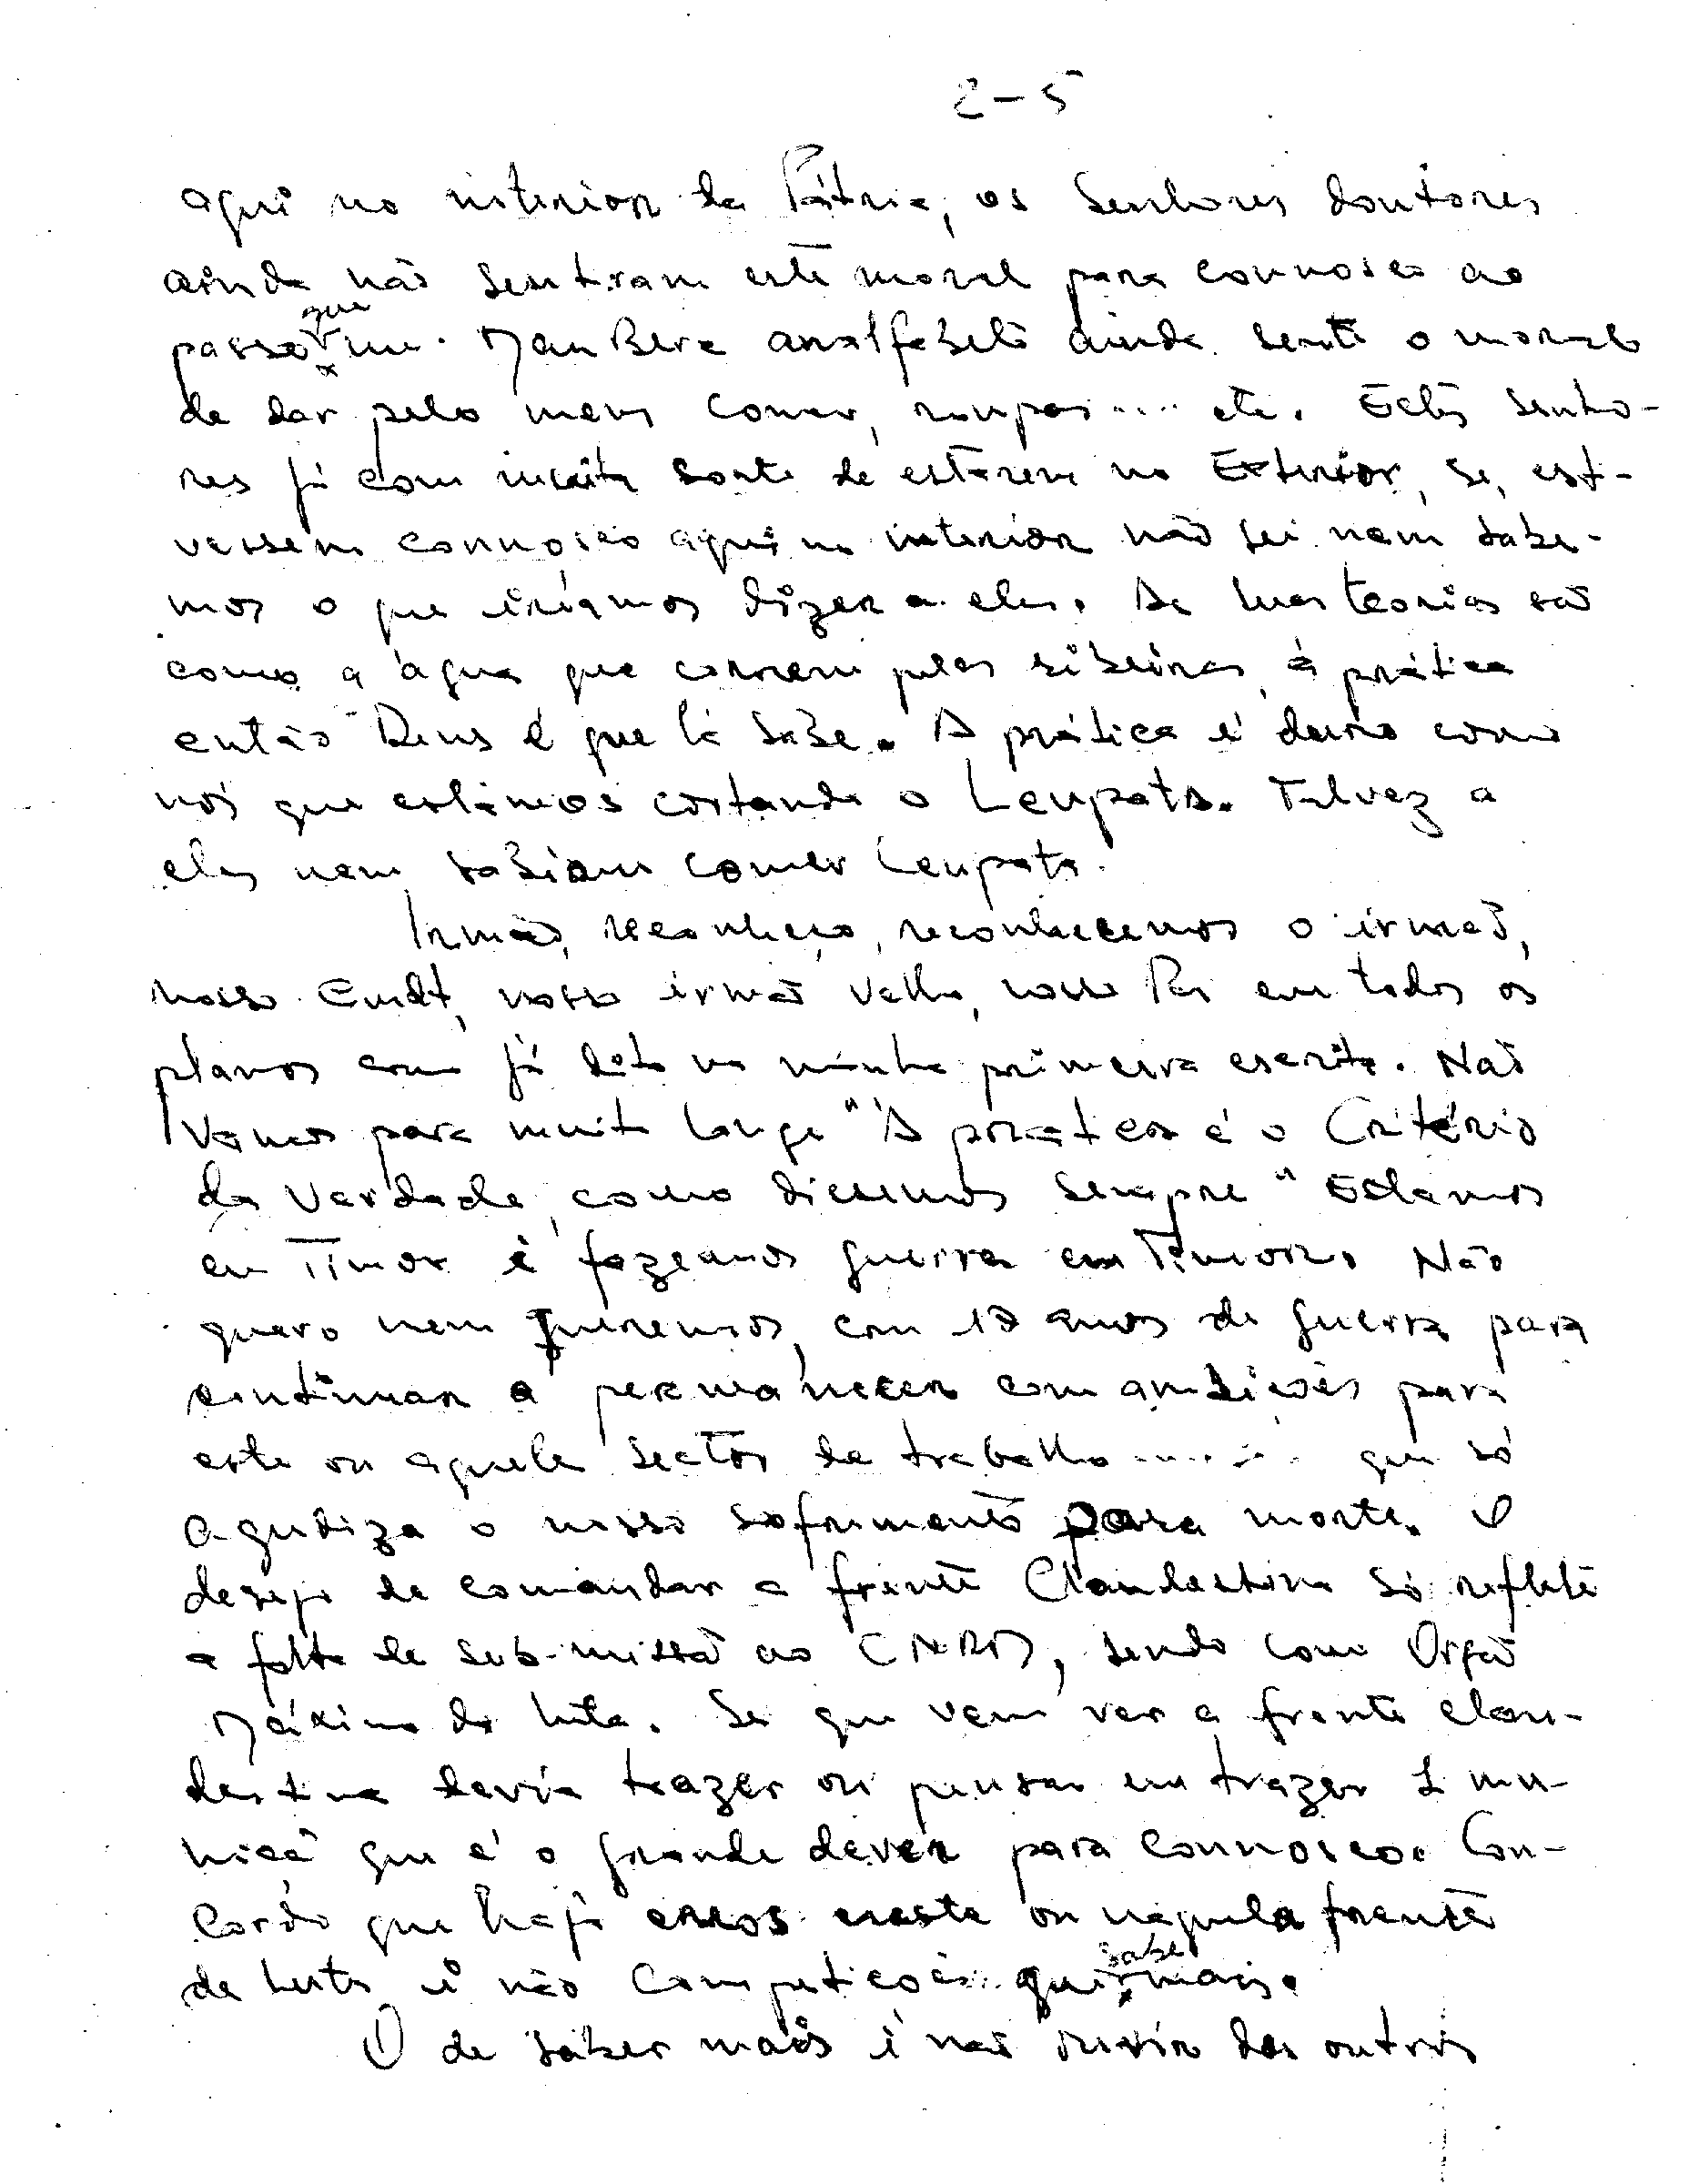 2-5
aqui no interior da Pátria, os Senhores doutores
ainda não sentiram este moral para connosco ao
passo que um. MauBere analfabeto ainda sente o moral
de dar pelo menos comer, roupas.... etc. Estes senho-
res já com muita sorte de estarem no Exterior, se, esti-
vessem connosco aqui no interior não sei nem sabe-
mos o que iríamos dizer a eles. As suas teorias são
como a água que correm pelas ribeiras, á prática
então Deus é que lá sabe. A prática é duro como
nós que estámos cortando o Leupata. Talvez a
eles nem sabiam comer Leupata.
Irmão, reconheço, reconhecemos o irmão,
nosso Cmdt, nosso irmão velho, nosso Pai em todos os
planos como já dito na minha primeira escrita. Não
vamos para muito longe "A prática é o Critério
da Verdade, como dissemos sempre" Estamos
em Timor é fazeamos guerra em Timor. Não
quero nem queremos, com 18 anos de guerra para
continuar a permanecer com ambições para
este ou aquele sector de trabalho........ que só
agudiza o nosso sofrimento para morte. O
desejo de comandar a frente Clandestina só reflete
a falta de sub-missão ao CNRM, sendo como Orgão
Máximo da luta. Se que vem ver a frente clan-
destina devia trazer ou pensar em trazer 1 mu-
nição que é o grande dever para connosco. Con-
cordo que haja erros neste ou naquela frente
de luta é não competições quem sabe mais.
O de saber mais é não ouvir dos outros